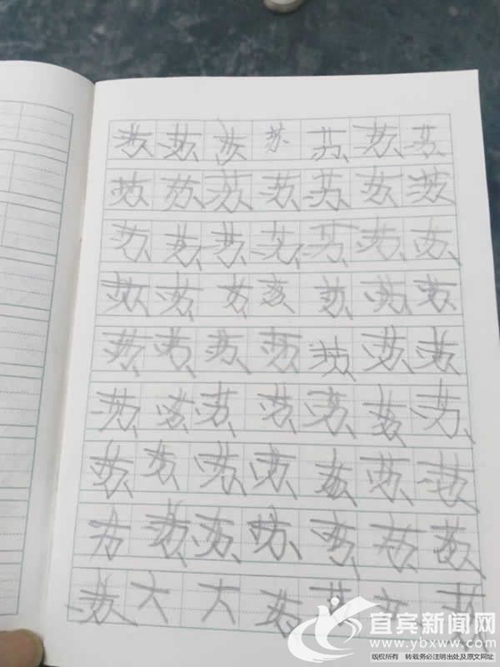 苏 苏 苏 苏 苏 苏 苏
苏 苏 苏 苏 苏 苏 苏
苏 苏 苏 苏 苏 苏 苏
苏 苏 苏 苏 苏 苏 苏
苏 苏 苏 苏 苏 苏 苏
苏 苏 苏 苏 苏 苏 苏
苏 苏 苏 苏 苏 苏 苏
苏 苏 苏 苏 苏 苏 苏
苏 大 大 苏 苏
宜宾新闻网
www.ybxww.com
版权所有 转载务必注明出处及原文网址